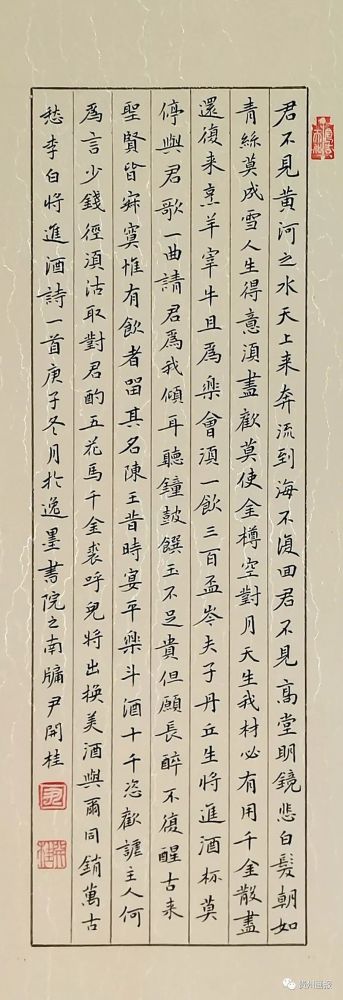 君不見黃河之水天上来奔流到海不復回君不見高堂明鏡悲白髮朝如
青絲莫成雪人生得意須盡歡莫使金樽空對月天生我材必有用千金散盡
還復来烹羊宰牛且爲樂會須一飲三百盃岑夫子丹丘生將進酒杯莫
停與君歌一曲請君爲我傾耳聽鐘鼓饌玉不足貴但願長醉不復醒古来
聖賢皆寂寞惟有飲者留其名陳王昔時宴平樂斗酒十千恣歡謔主人何
爲言少錢徑須沽取對君酌五花馬千金裘呼兒將出換美酒與爾同銷萬古
愁李白將進酒詩一首庚子冬月於逸墨書院之南牖尹開桂
贵州画报